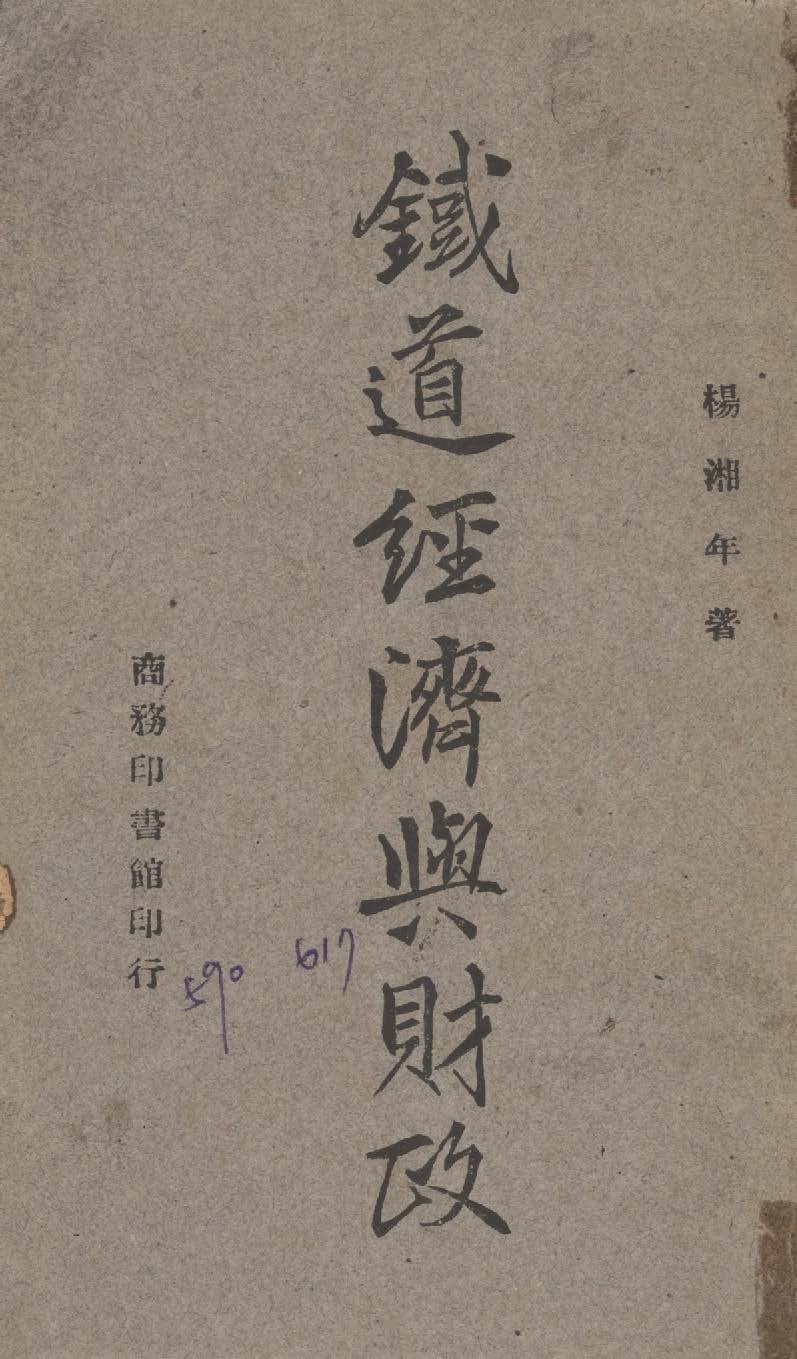 楊湘年著
鐵道經濟與財政
商務印書館印行
590 617